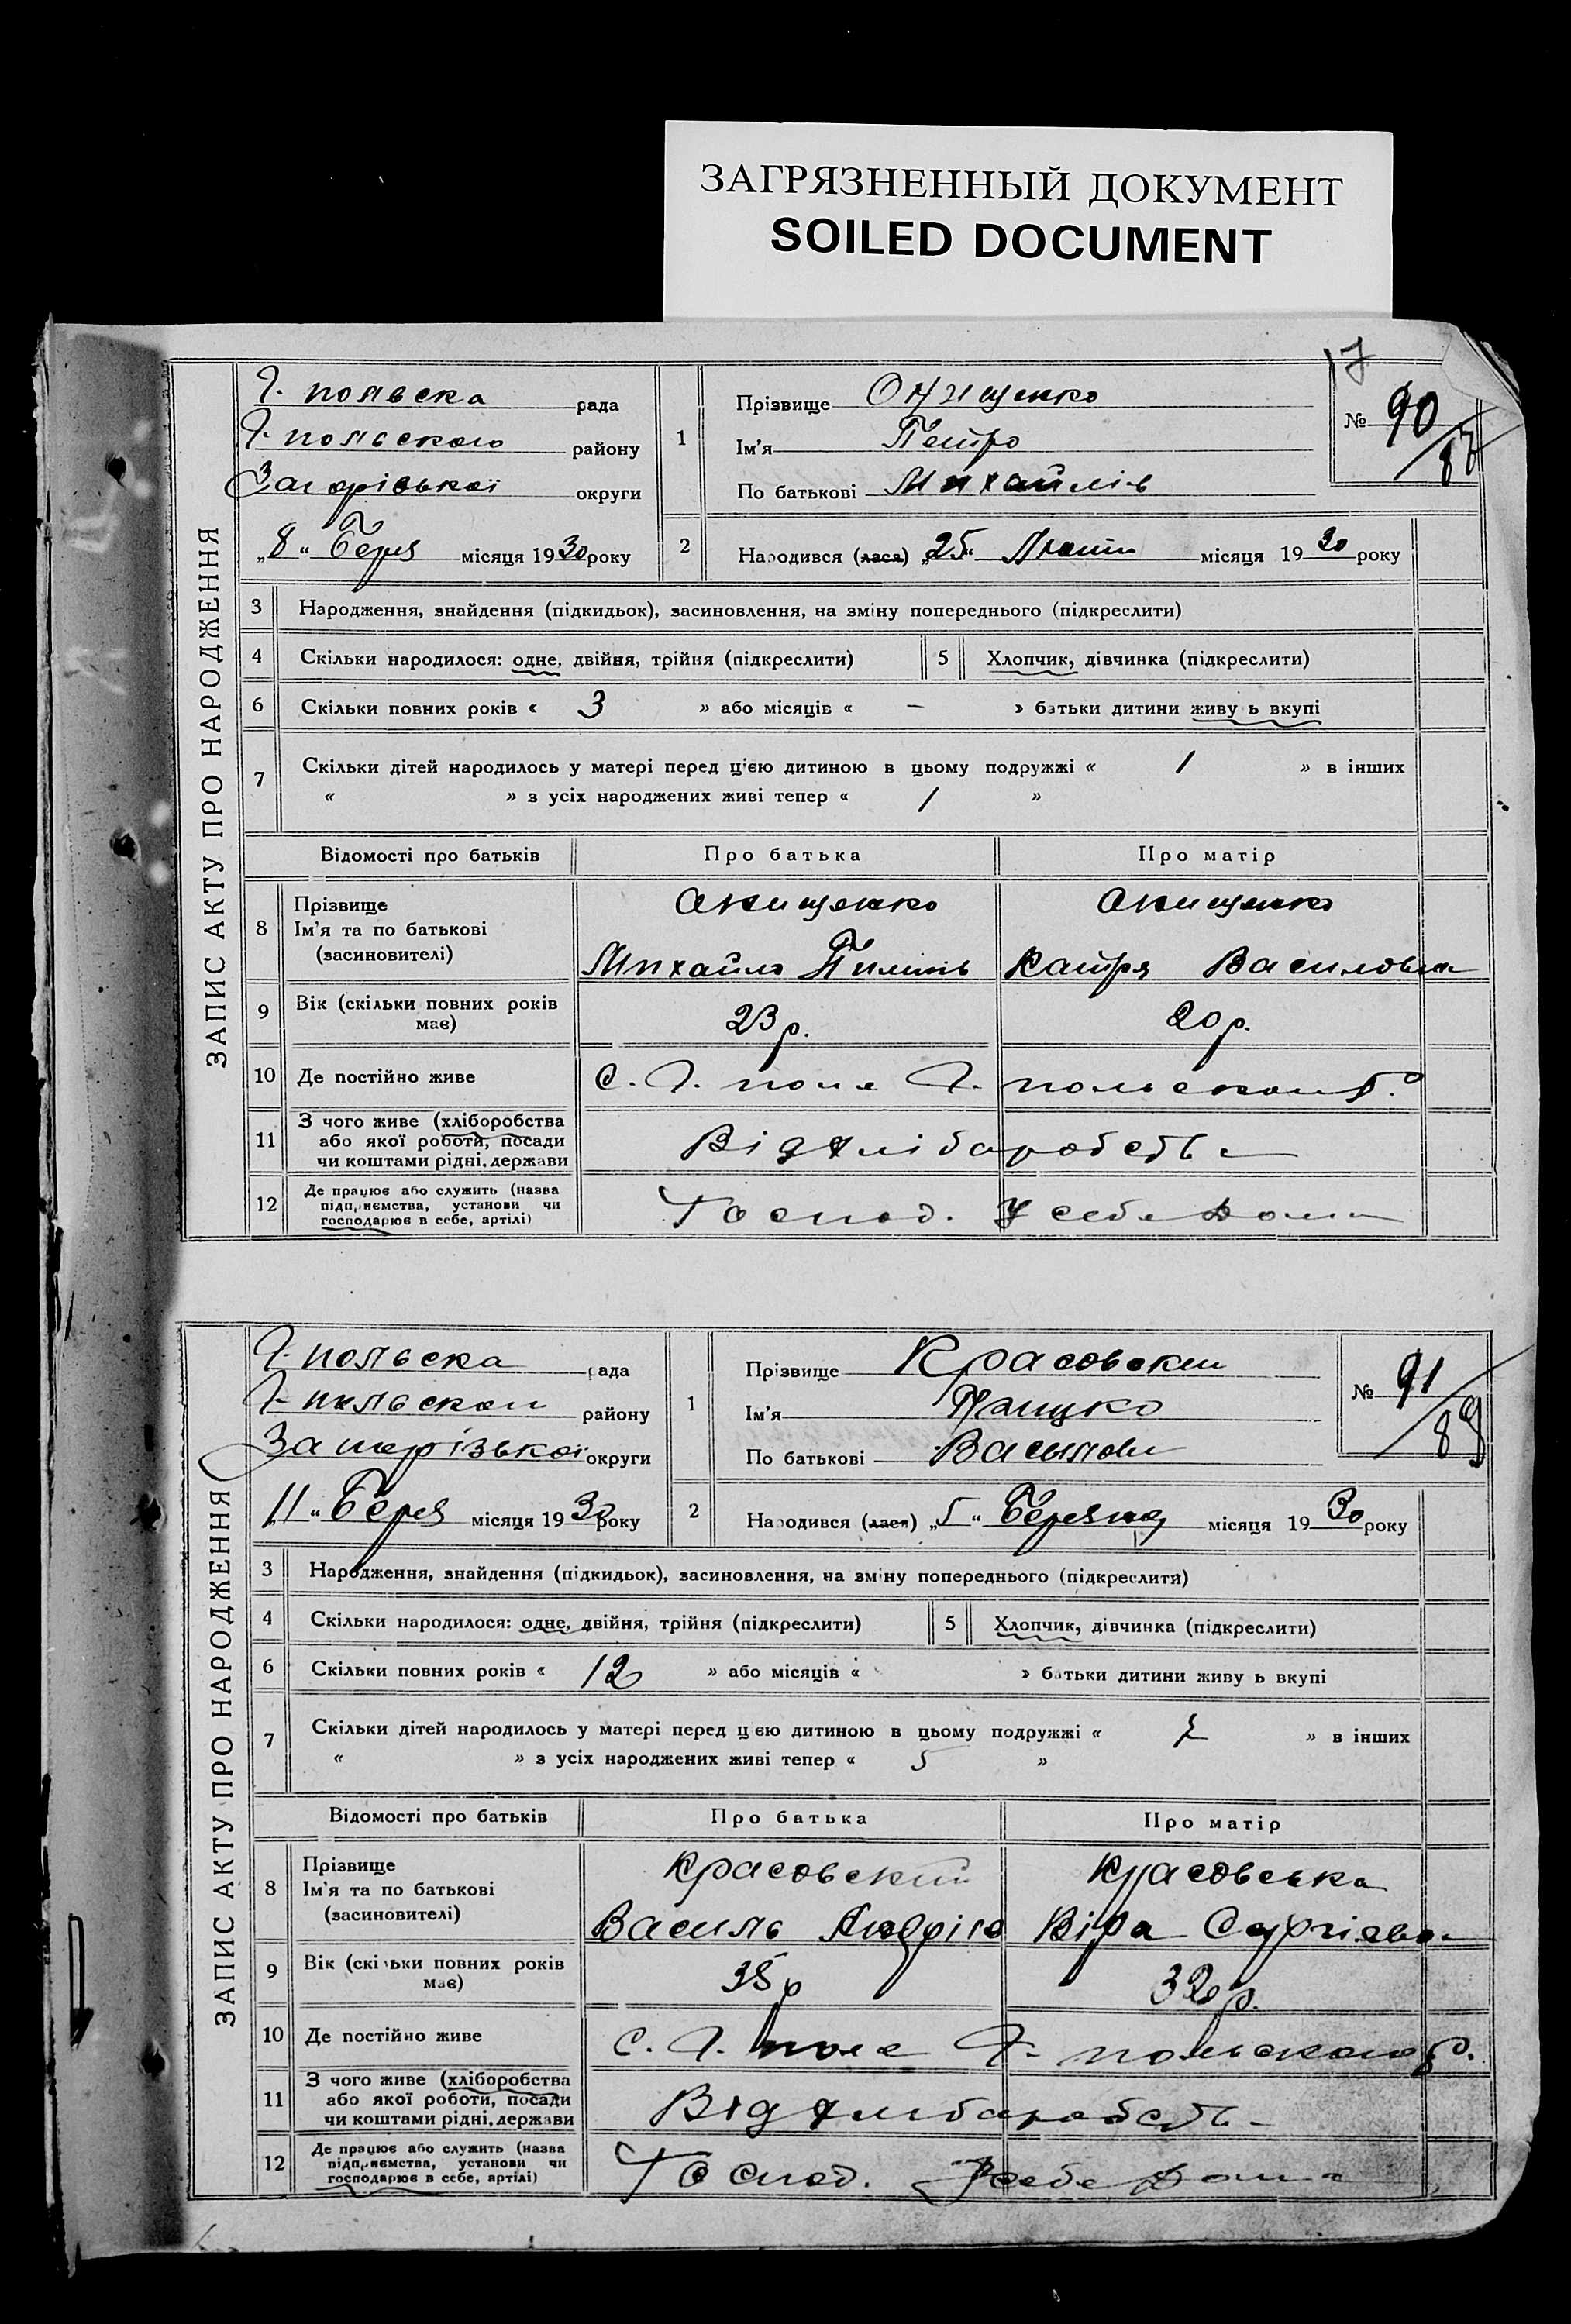 ЗАГРЯЗНЕННЫЙ ДОКУМЕНТ
SOILED DOCUMENT
17
ЗАПИС АКТУ ПРО НАРОДЖЕННЯ
Г. польска рада
Г. польского району
округи
„8“ Берез місяця 1930 року
1
Прізвище Онищенко
Ім'я Петро
По батькові Михайлів
№ 90
2
Народився (лася) „25“ місяця 1930 року
3 Народження, знайдення (підкидьок), засиновлення, на зміну попереднього (підкреслити)
4 Скільки народилося: одне, двійня, трійня (підкреслити) 5 Хлопчик, дівчинка (підкреслити)
6 Скільки повних років « 3 » або місяців « — » батьки дитини живу ь вкупі
7 Скільки дітей народилось у матері перед цією дитиною в цьому подружжі « 1 » в інших
« » з усіх народжених живі тепер « 1 »
Відомості про батьків Про батька Про матір
8 Прізвище
Ім'я та по батькові
(засиновителі)
Онищенко Онищенко
Михайло Катря Василовна
9 Вік (скільки повних років має) 23 р. 20 р.
10 Де постійно живе С. Г. поле Г. польского р.
11 З чого живе (хліборобства
або якої роботи, посади
чи коштами рідні, держави
Від хліборобства
12 Де працює або служить (назва
підприємства, установи чи
господарює в себе, артілі)
Господ. У себе дома
ЗАПИС АКТУ ПРО НАРОДЖЕННЯ
Г. польска рада
Г. польскои району
Запорізької округи
„11“ Берез місяця 1930 року
1
Прізвище Красовский
Ім'я
По батькові
№ 91
89
2
Народився (лася) „5“ Березня місяця 1930 року
3 Народження, знайдення (підкидьок), засиновлення, на зміну попереднього (підкреслити)
4 Скільки народилося: одне, двійня, трійня (підкреслити) 5 Хлопчик, дівчинка (підкреслити)
6 Скільки повних років « 12 » або місяців « » батьки дитини живу ь вкупі
7 Скільки дітей народилось у матері перед цією дитиною в цьому подружжі « » в інших
« » з усіх народжених живі тепер « 5 »
Відомості про батьків Про батька Про матір
8 Прізвище
Ім'я та по батькові
(засиновителі)
Красовский Красовська
Василь Андрію Віра Сергіевна
9 Вік (скільки повних років має) 38 р 32 р.
10 Де постійно живе С. Г. поле Г. польского р.
11 З чого живе (хліборобства
або якої роботи, посади
чи коштами рідні, держави
Від хлиборобств
12 Де працює або служить (назва
підприємства, установи чи
господарює в себе, артілі)
Господ. У себе дома